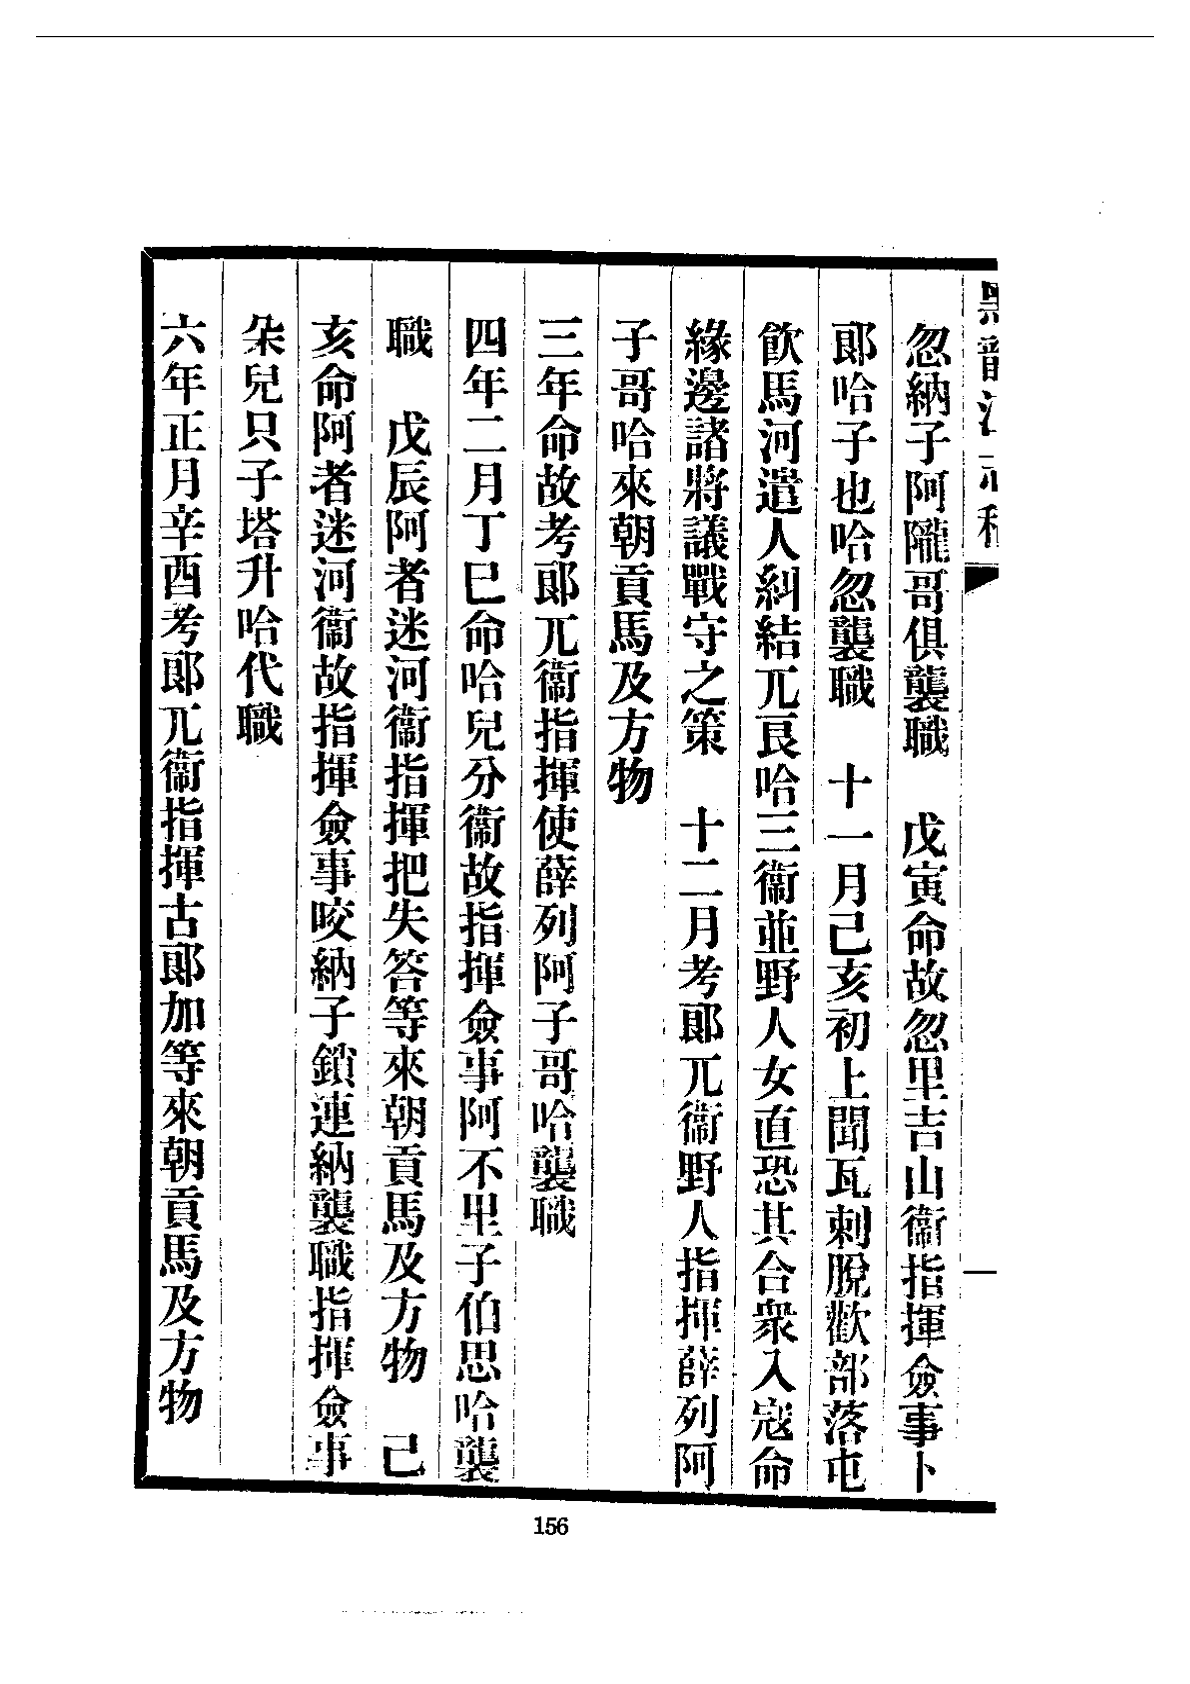 黑龍江志稿
忽納子阿隴哥俱襲職　戊寅命故忽里吉山衞指揮僉事卜
郎哈子也哈忽襲職　十一月己亥初上聞瓦剌脫歡部落屯
飮馬河遣人糾結兀良哈三衞並野人女直恐其合衆入寇命
緣邊諸將議戰守之策　十二月考郞兀衞野人指揮薛列阿
子哥哈來朝貢馬及方物
三年命故考郞兀衞指揮使薛列阿子哥哈襲職
四年二月丁巳命哈兒分衞故指揮僉事阿不里子伯思哈襲
職　戊辰阿者迷河衞指揮把失答等來朝貢馬及方物　己
亥命阿者迷河衞故指揮僉事咬納子鎖連納襲職指揮僉事
朵兒只子塔升哈代職
六年正月辛酉考郞兀衞指揮古郞加等來朝貢馬及方物
一
156